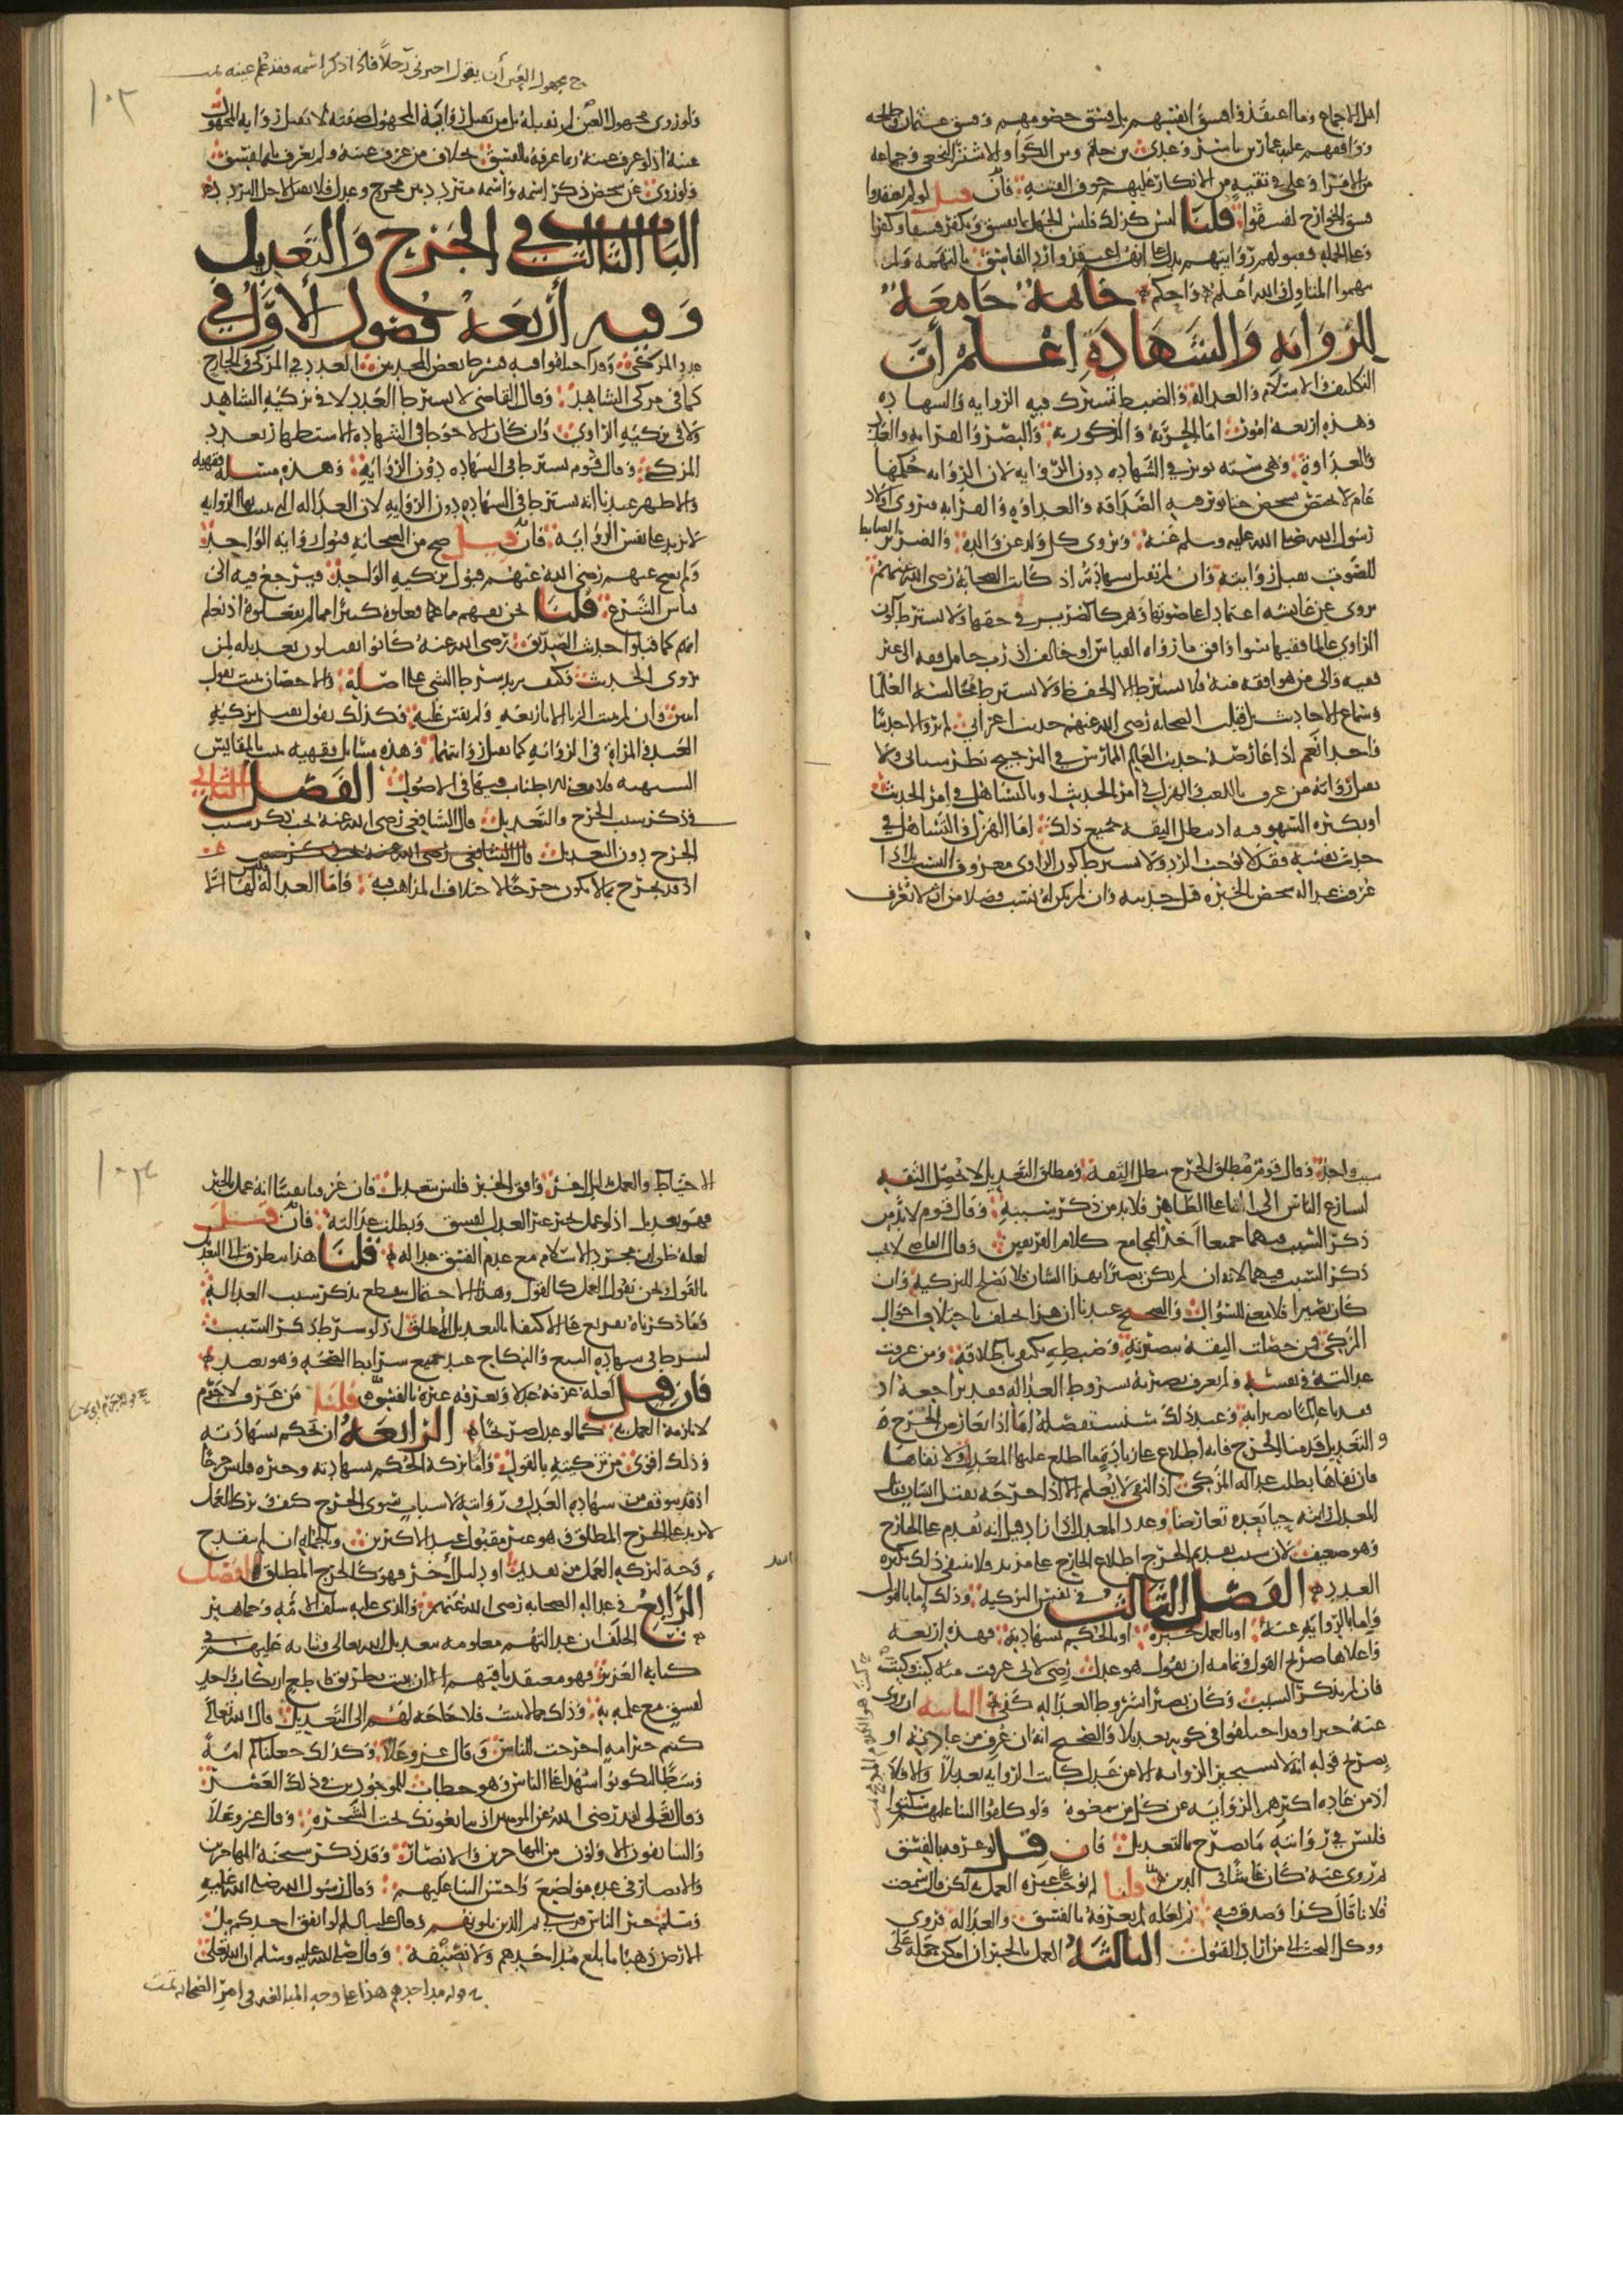 اهل الاجماع وما اعتقدوا فسق انفسهم بل فسق خصومهم وفسق عثمان وطلحه
ووافقهم عليه عمار بن ياسر وعدي بن حاتم وبن الكوا والاشتر النخعي وجماعه
من الامرا وعلي في تقيه من الانكار عليهم خوف الفتنه فان قيل لو لم يعتقدوا
فسق الخوارج لفسقوا قلنا ليس كذلك فليس الجهل بما يفسق ويكفر فسقا وكفرا
وعلى الجمله فقبولهم روايتهم يدل على انهم اعتقدوا رد الفاسق بالتهمه ولم
يتهموا المتاول والله اعلم واحكم خاتمة جامعة
للرواية والشهادة اعلم أن
التكليف والاسلام والعدالة والضبط تشترك فيه الروايه والشهاده
وهذه اربعه امور اما الحرية والذكورية والبصر والقرابه والعدد
والعداوة وهي سته توثر في الشهاده دون الروايه لان الروايه حكمها
عام لا يختص بشخص حتى توثر فيه الصداقة والعداوه والقرابه فيروي اولاد
رسول الله صلى الله عليه وسلم عنه ويروي كل ولد عن والده والضرير الضابط
للصوت تقبل روايته وان لم تقبل شهادته اذ كانت الصحابة رضي الله عنهم
يروي عن عايشه اعتمادا على صوتها وهم كالضرير في حقها ولا يشترط كون
الراوي عالما فقيها سوا وافق ما رواه القياس او خالف اذ رب حامل فقه الى غير
فقيه والى من هو افقه منه فلا يشترط الا الحفظ ولا يشترط مجالسة العلما
وسماع الاحاديث بل قبلت الصحابه رضي الله عنهم حديث اعرابي لم يرو الا حديثا
واحدا نعم اذا عارضه حديث العالم الممارس ففي الترجيح نظر سياتي ولا
تقبل رواية من عرف باللعب والهزل في امر الحديث او بالتساهل في امر الحديث
او بكثرة السهو فيه اذ تبطل الثقه بجميع ذلك اما الهزل والتساهل في
حديث نفسه فقد لا يوجب الرد ولا يشترط كون الراوي معروف النسب بل اذا
عرفت عدالة شخص بالخبره قبل حديثه وان لم يكن له نسب فضلا من ان لا يعرف
ح مجهول العين أن يقول اخبرني رجلا فاذا ذكر اسمه فقد علم عينه تمت
١٠٢
ولو روى مجهول العين لم نقبله بل من يقبل رواية المجهول صفته لا يقبل رواية المجهول
عينه اذ لو عرف عينه ربما عرفه بالفسق بخلاف من عرف عينه ولم يعرف بالفسق
ولو روى عن شخص ذكر اسمه واسمه متردد بين مجروح وعدل فلا يقبل لاجل التردد
الباب الثالث في الجرح والتعديل
وفيه أربعة فصول الأول في
عدد المزكي وقد اختلفوا فيه فشرط بعض المحدثين العدد في المزكي والجارح
كما في مزكي الشاهد وقال القاضي لا يشترط العدد لا في تزكية الشاهد
ولا في تزكية الراوي وان كان الاحوط في الشهاده الاستظهار بعدد
المزكي وقال قوم يشترط في الشهاده دون الرواية وهذه مسئلة فقهية
والاظهر عندنا انه يشترط في الشهاده دون الروايه لان العدالة التي تثبت بها الرواية
لا تزيد على نفس الرواية فان قيل صح من الصحابة قبول رواية الواحد
ولم يصح عنهم رضي الله عنهم قبول تزكية الواحد فيرجع فيه الى
قياس الشرع قلنا نحن نفهم مما فعلوه كثيرا مما لم يفعلوه اذ نعلم
انهم كما قبلوا حديث الصديق رضي الله عنه كانوا يقبلون تعديله لمن
روى الحديث فكيف يزيد شرط الشي على اصله والاحصان يثبت بقول
اثنين وان لم يثبت الزنا الا باربعة ولم يقس عليه فكذلك نقول تقبل تزكية
العبد والمراة في الرواية كما تقبل روايتهما وهذه مسايل فقهيه تثبت بالمقاييس
الشبهيه فلا معنى للاطناب فيها في الاصول الفصل الثاني
في ذكر سبب الجرح والتعديل قال الشافعي رضي الله عنه يجب ذكر سبب
الجرح دون التعديل قال الشافعي رضي الله عنه يجب ذكر سبب
اذ قد يجرح بما لا يكون جرحا لاختلاف المذاهب فيه واما العداله فليس لها الا
سبب واحد وقال قوم مطلق الجرح يبطل الثقة ومطلق التعديل لا يحصل الثقه
لتسارع الناس الى البنا على الظاهر فلا بد من ذكر سببه وقال قوم لا بد من
ذكر السبب فيهما جميعا اخذا بمجامع كلام الفريقين وقال القاضي لا يجب
ذكر السبب فيهما لانه ان لم يكن بصيرا بهذا الشان فلا يصلح للتزكيه وان
كان بصيرا فلا معنى للسؤال والصحيح عندنا ان هذا يختلف باختلاف احوال
المزكي فمن حصلت الثقه ببصيرته وضبطه يكتفى باطلاقه ومن عرفت
عدالته في نفسه ولم يعرف بصيرته بشروط العداله فقد نراجعه اذا
فقدنا عالما بصيرا به وعند ذلك نستفصله اما اذا تعارض الجرح
والتعديل قدمنا الجرح فانه اطلاع على زيادة ما اطلع عليها المعدل ولا نفاها
فان نفاها بطلت عدالة المزكي اذ النفي لا يعلم الا اذا جرحه بقتل انسان فقال
المعدل رايته حيا بعده تعارضا وعدد المعدل اذا زاد قيل انه يقدم على الجارح
وهو ضعيف لان سبب تقديم الجرح اطلاع الجارح على مزيد فلا ينتفي ذلك بكثرة
العدد الفصل الثالث في نفس التزكية وذلك اما بالقول
واما بالرواية عنه او بالعمل بخبره او بالحكم بشهادته فهذه اربعه
واعلاها صريح القول وتمامه ان يقول هو عدل رضى لاني عرفت منه كيت وكيت
فان لم يذكر السبب وكان بصيرا بشروط العدالة كفى الثانية ان يروي
عنه خبرا وقد اختلفوا في كونه تعديلا والصحيح انه ان عرف من عادته او
بصريح قوله انه لا يستجيز الرواية الا من عدل كانت الرواية تعديلا والا فلا
اذ من عادة اكثرهم الرواية عن كل من سمعوه ولو كلفوا الثنا عليهم سكتوا
فليس في روايته ما يصرح بالتعديل فان قيل لو عرفه بالفسق
ثم روى عنه كان غاشا في الدين قلنا لم نوجب على غيره العمل لكن قال سمعت
فلانا قال كذا وصدق فيه ثم لعله لم يعرفه بالفسق والعداله فروى
ووكل البحث الى من اراد القبول الثالثة العمل بالخبر ان امكن حمله على
١٠٣
الاحتياط والعمل بدليل اخر وافق الخبر فليس بتعديل فان عرفنا يقينا انه عمل بالخبر
فهو تعديل اذ لو عمل بخبر غير العدل لفسق وبطلت عدالته فان قيل
لعله ظن ان مجرد الاسلام مع عدم الفسق عدالة قلنا هذا يتطرق الى التعديل
بالقول ونحن نقول العمل كالقول وهذا الاحتمال ينقطع بذكر سبب العدالة
وما ذكرناه تفريع على الاكتفا بالتعديل المطلق اذ لو شرط ذكر السبب
لشرط في شهادة البيع والنكاح عد جميع شرايط الصحة وهو بعيد
فان قيل لعله عرفه عدلا ويعرفه غيره بالفسق قلنا من عرف لا جرم
لا يلزمه العمل به كما لو عدل صريحا الرابعة ان نحكم بشهادته
وذلك اقوى من تزكيته بالقول واما ترك الحكم بشهادته وخبره فليس جرحا
اذ قد يتوقف في شهادة العدل وروايته لاسباب سوى الجرح كيف وترك العمل
لا يزيد على الجرح المطلق وهو غير مقبول عند الاكثرين وبالجملة ان لم ينقدح
وجه لتزكية العمل من تقديم او دليل آخر فهو كالجرح المطلق الفصل
الرابع في عدالة الصحابه رضي الله عنهم والذي عليه سلف الامة وجماهير
الخلف ان عدالتهم معلومه بتعديل الله تعالى وثنايه عليهم في
كتابه العزيز فهو معتقدنا فيهم الا ان يثبت بطريق قاطع ارتكاب واحد
لفسق مع علمه به وذلك مما لا يثبت فلا حاجة لهم الى التعديل قال الله تعالى
كنتم خير امة اخرجت للناس وقال عز وعلا وكذلك جعلناكم امة
وسطا لتكونوا شهدا على الناس وهو خطاب للموجودين في ذلك العصر
وقال تعالى لقد رضي الله عن المومنين اذ يبايعونك تحت الشجره وقال عز وعلا
والسابقون الاولون من المهاجرين والانصار وقد ذكر سبحنه المهاجرين
والانصار في عدة مواضع واحسن الثنا عليهم وقال رسول الله صلى الله عليه
وسلم خير الناس قرني ثم الذين يلونهم وقال عليه السلم لو انفق احدكم مل
الارض ذهبا ما بلغ مد احدهم ولا نصيفه وقال صلى الله عليه وسلم ان الله تعالى
قوله مد احدهم هذا على وجه المبالغه في امر الصحابه تمت